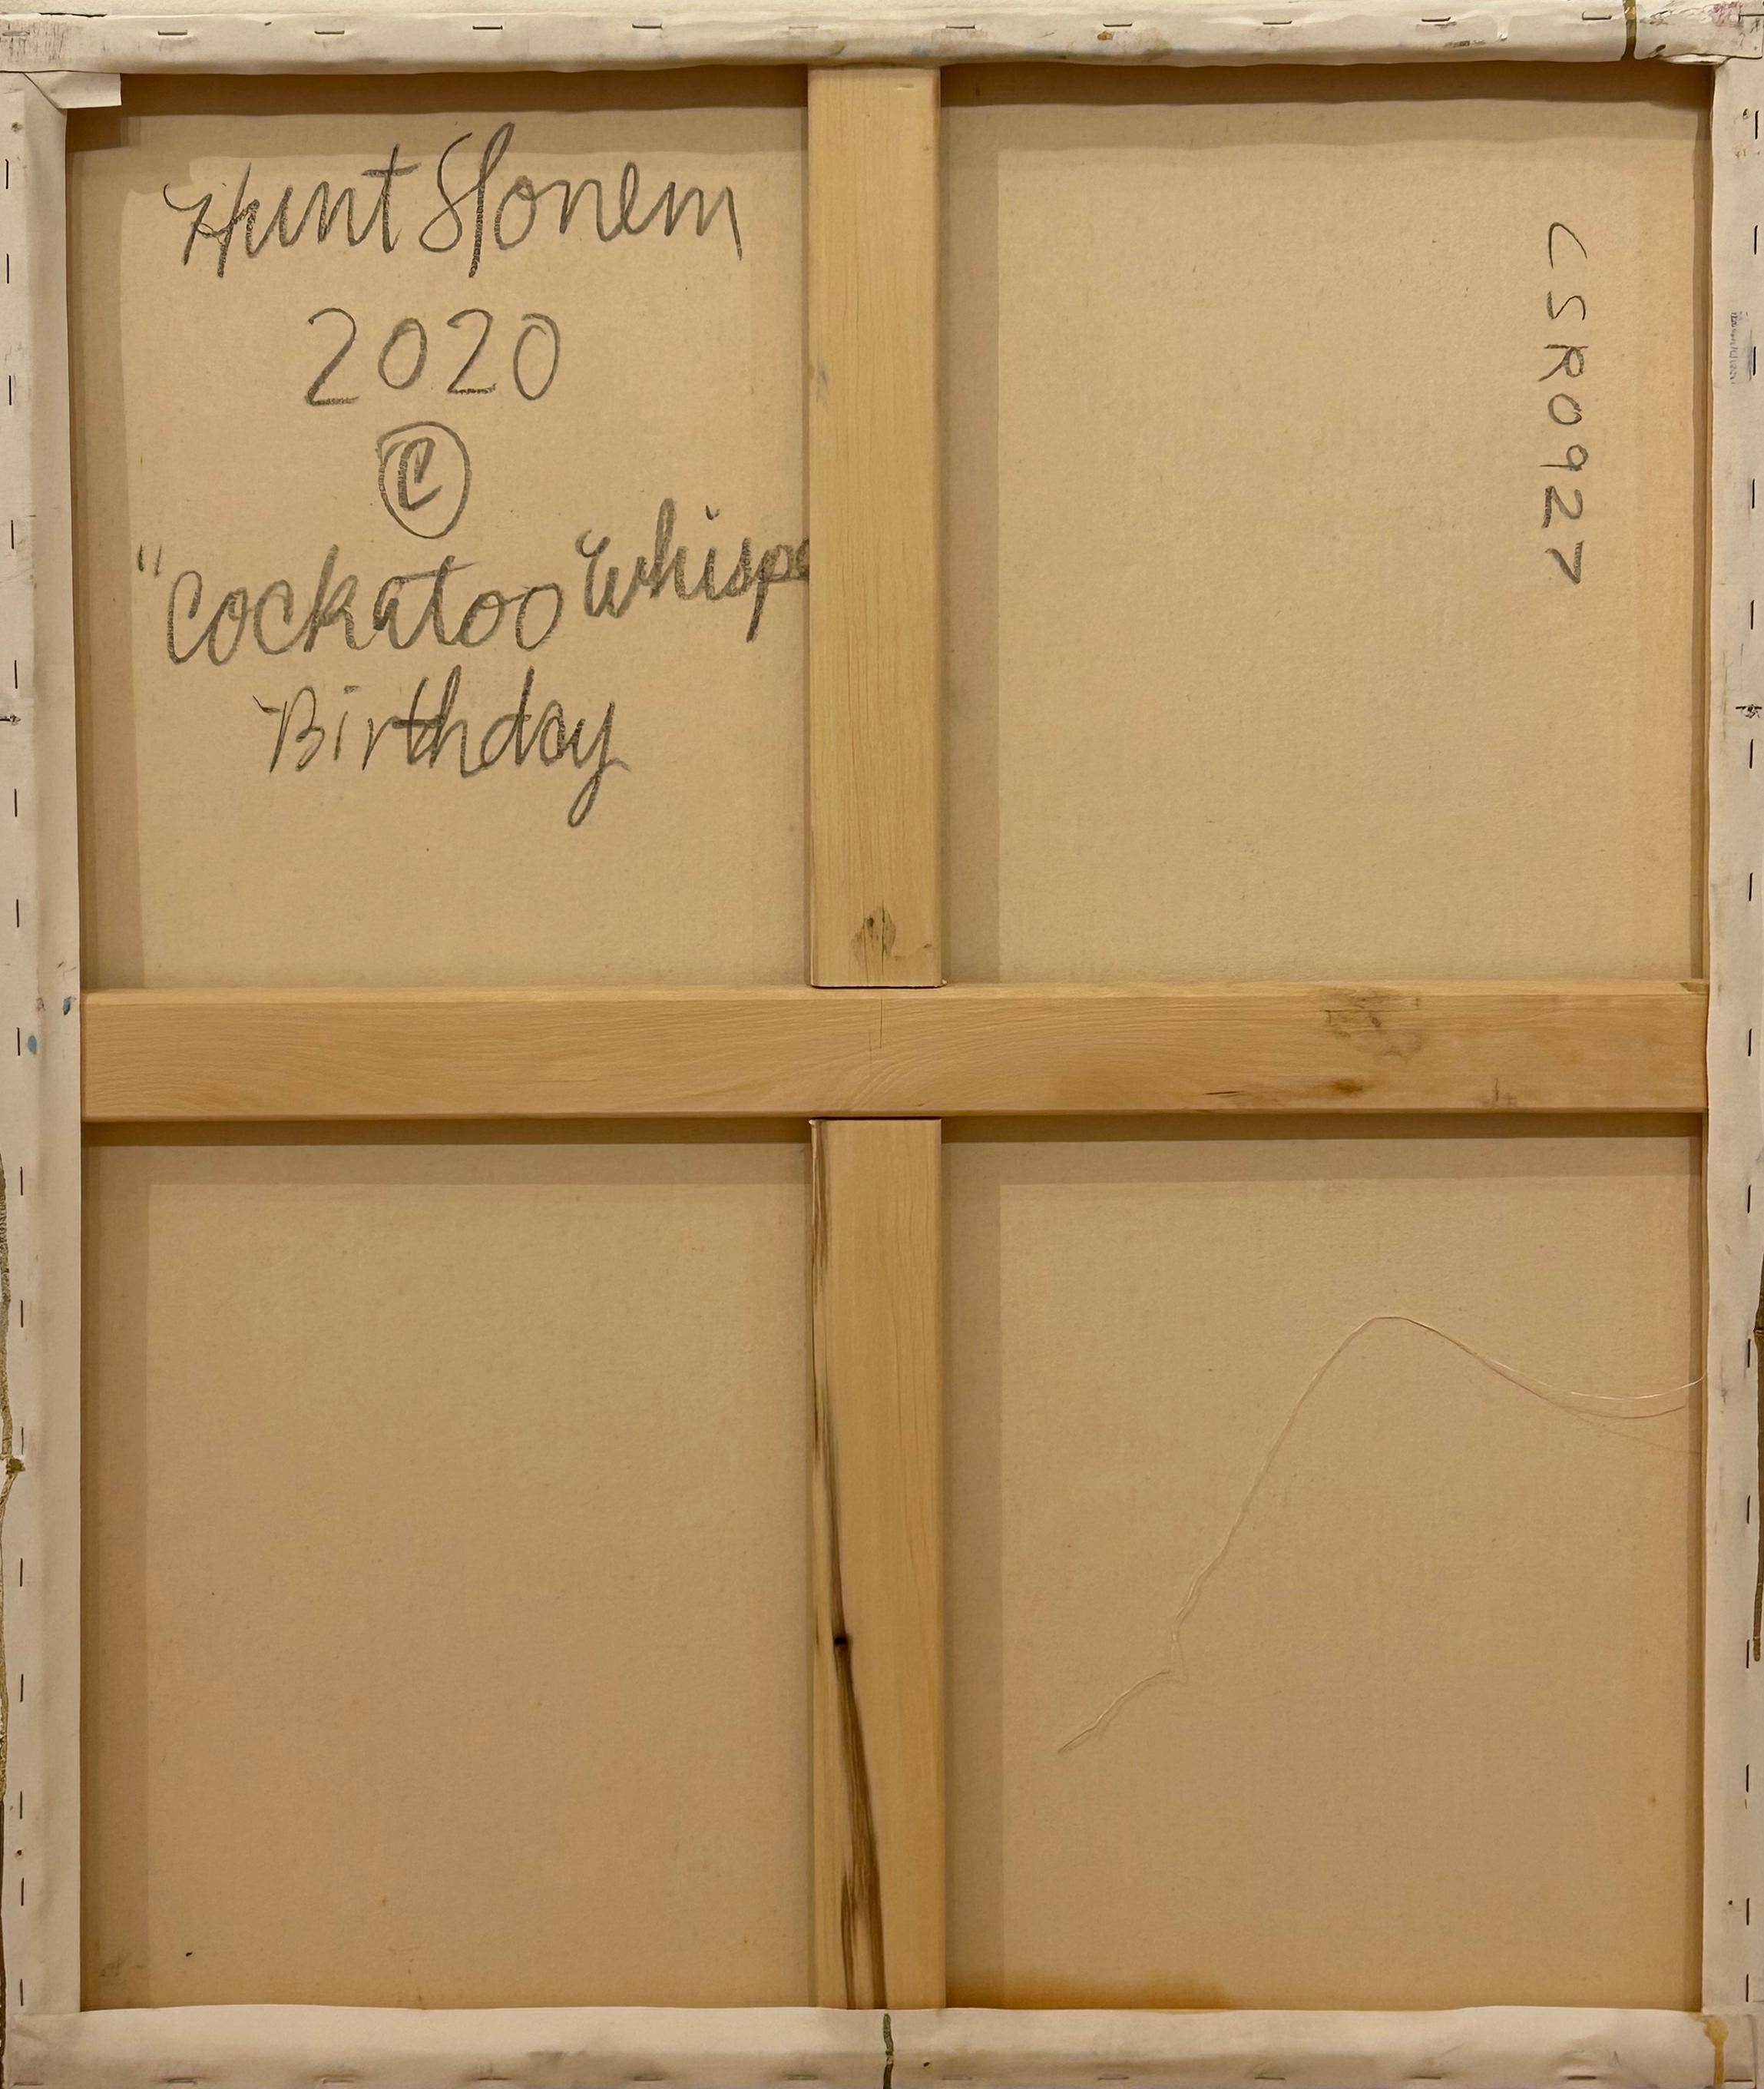 Hunt Slonem
2020
©
"Cockatoo Whispe
Birthday
CSR0927